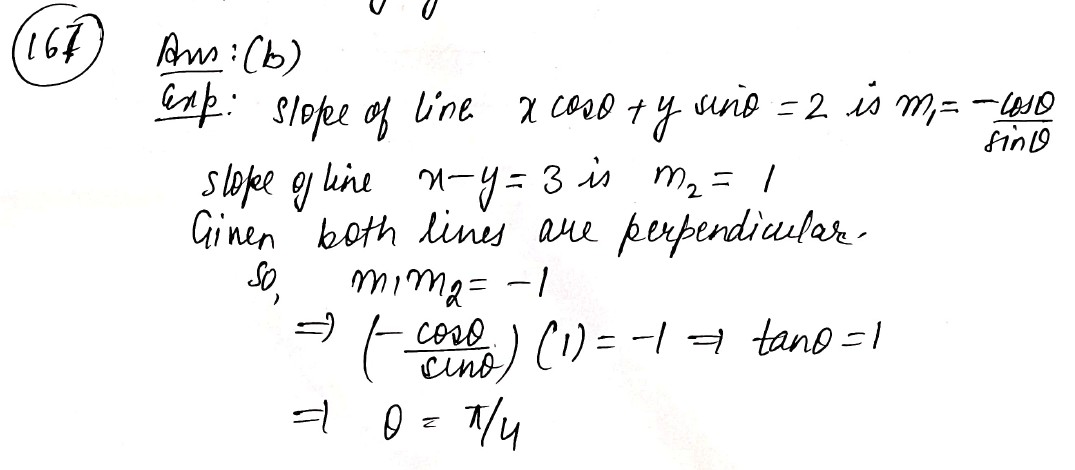 (167) Ans : (b)
Exp: slope of line x cosθ + y sinθ = 2 is m₁ = -cosθ/sinθ
slope of line x-y = 3 is m₂ = 1
Given both lines are perpendicular.
So, m₁m₂ = -1
⇒ (-cosθ/sinθ) (1) = -1 ⇒ tanθ = 1
⇒ θ = π/4